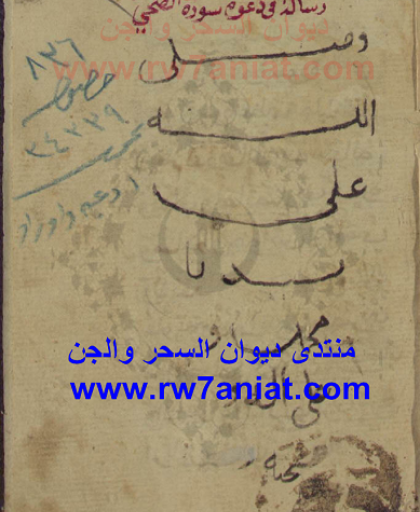 رسالة في دعوة سورة الضحى
ديوان السحر والجن
www.rw7aniat.com
وصلى
الله
على
سيدنا
محمد و
على آل
صحبه
٨٣٦
٣٤٧٣٩
ادعيه واوراد
منتدى ديوان السحر والجن
www.rw7aniat.com